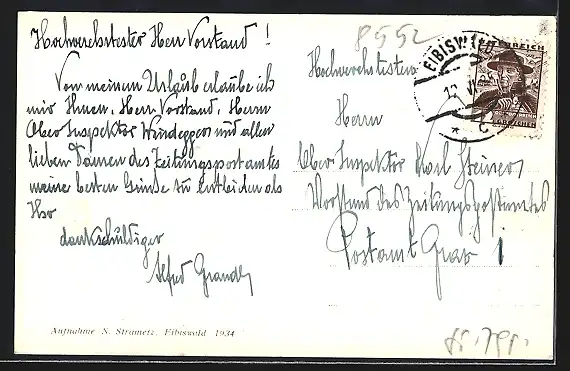 Hochverehrtester Herr Vorstand!
Von meinem Urlaub erlaube ich
mir Ihnen, Herr Vorstand, Herrn
Ober Inspektor Windegger und allen
lieben Damen des Zeitungspostamtes
meine besten Grüße zu entbieten als
Ihr
dankschuldiger
Alfred Grandl
Aufnahme N. Strametz, Eibiswald 1934
8552
Hochverehrtesten
Herrn
Ober Inspektor Karl Greiner
Vorstand des Zeitungspostamtes
Postamt Graz 1
EIBISWALD
ÖSTERREICH